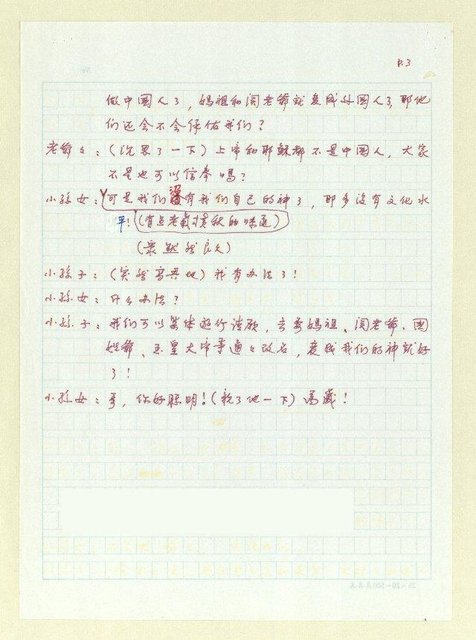 P.3
做中国人了，媽祖和阎老爺就变成外国人了那他
们还会不会保佑我们？
老爺爺：（沉思了一下）上帝和耶穌都不是中国人，大家
不是也可以信奉嗎？
小孫女：可是我们沒有我们自己的神了，那多沒有文化水
平！（有点老氣橫秋的味道）
（眾默然良久）
小孫子：（突然高興地）我有办法了！
小孫女：什么办法？
小孫子：我们可以集体遊行請願，去要媽祖、阎老爺、国
姓爺、玉皇大帝等通通改名，变成我们的神就好
了！
小孫女：哥，你好聪明！（親了他一下）萬歲！